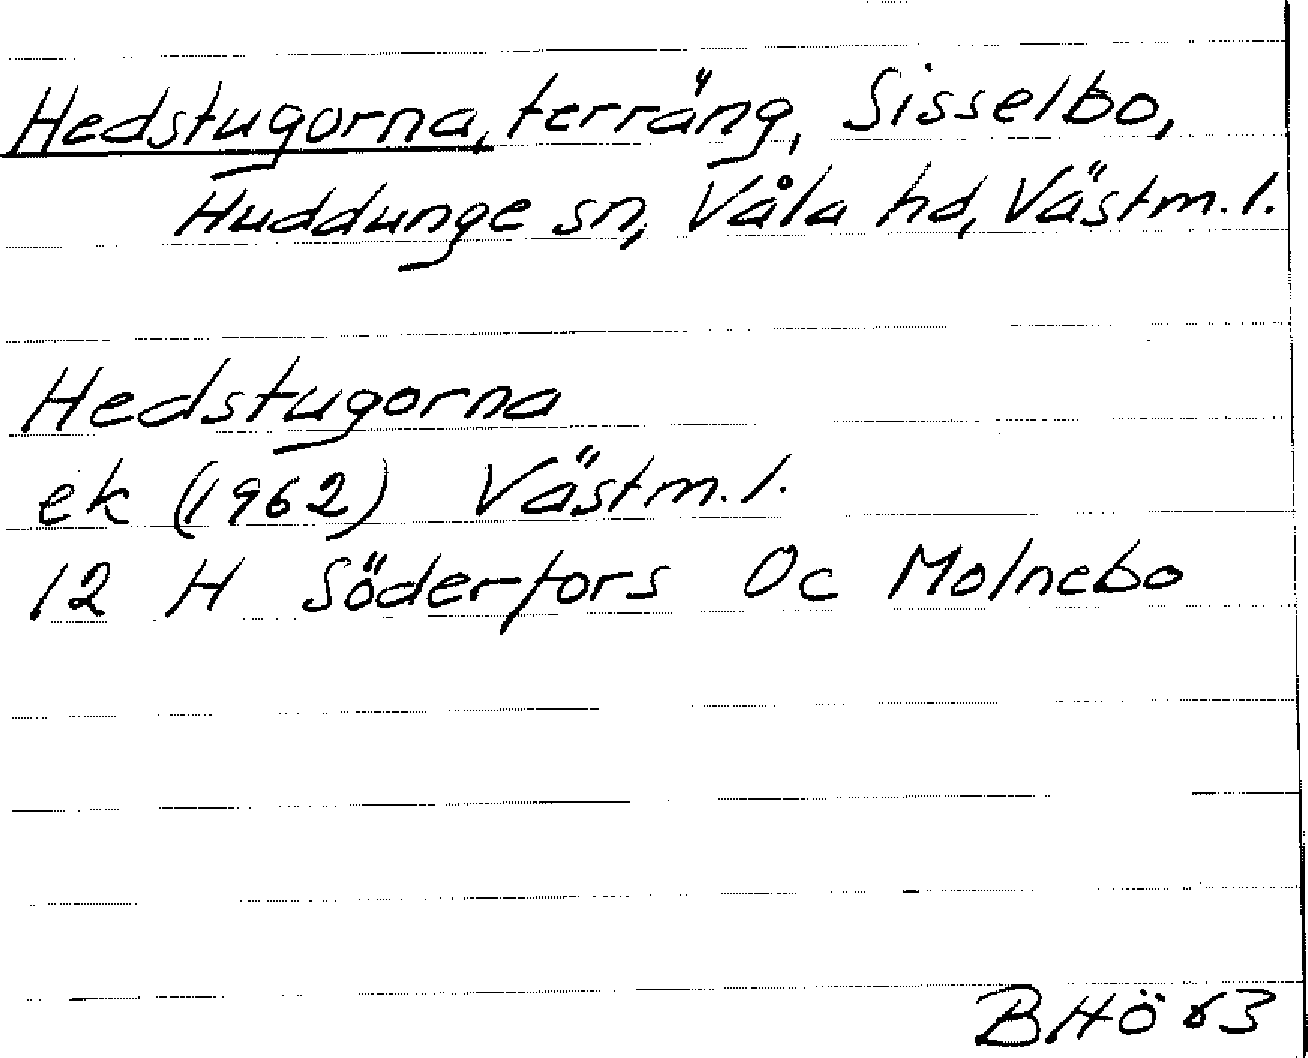 Hedstugorna, terräng, Sisselbo,
Huddunge sn, Våla hd, Västm. l.
Hedstugorna
ek (1962) Västm. l.
12 H Söderfors 0c Molnebo
BHÖ 63